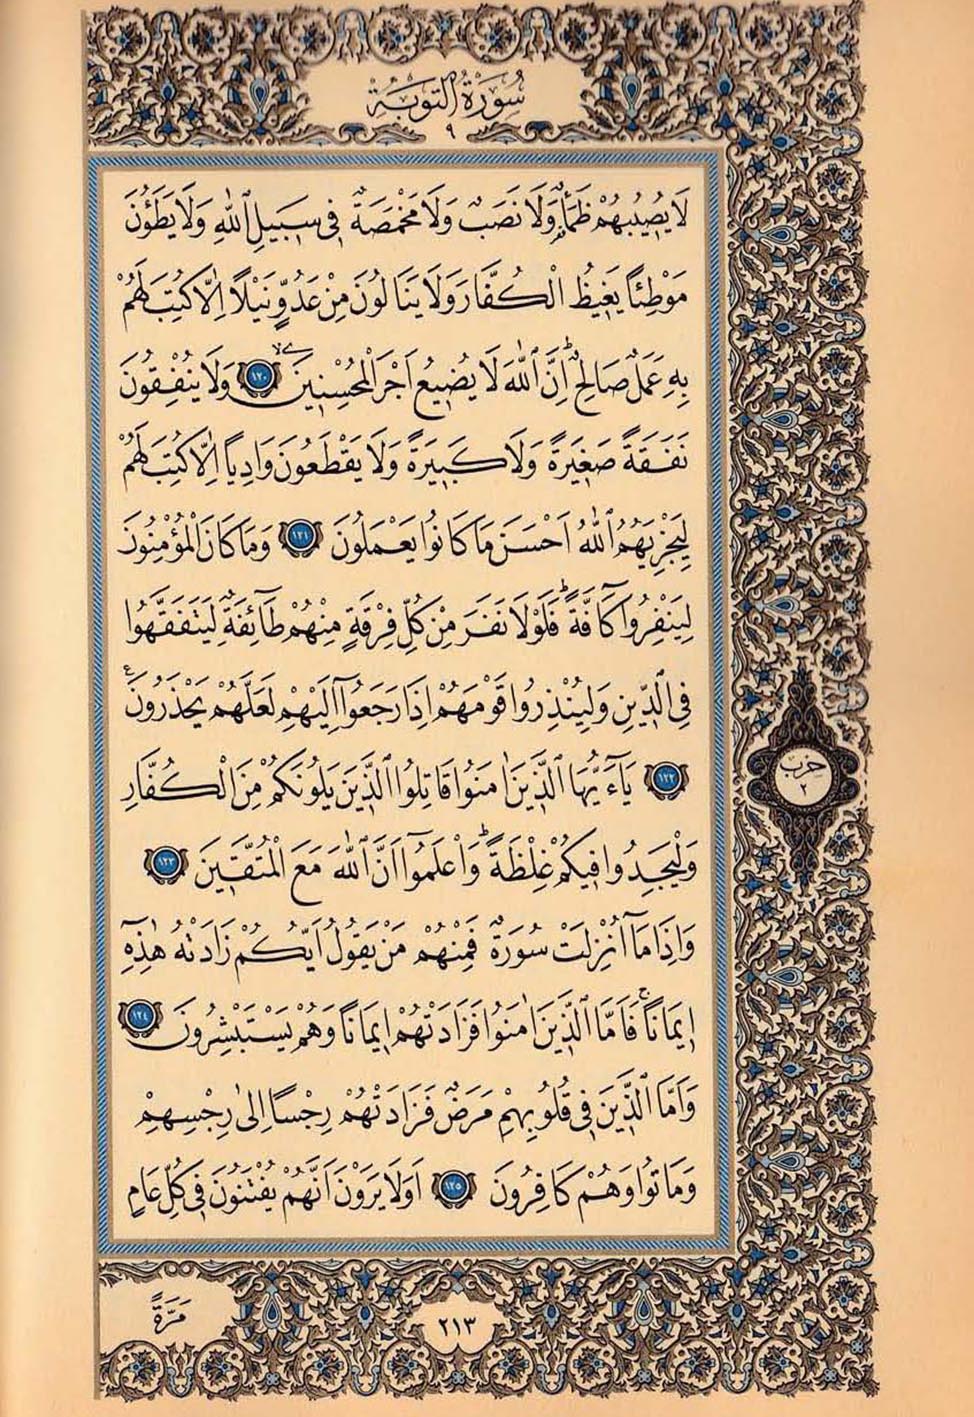 سُورَةُ التَّوْبَةِ
٩
لَا يُصٖيبُهُمْ ظَمَأٌ وَلَا نَصَبٌ وَلَا مَخْمَصَةٌ فٖي سَبٖيلِ اللّٰهِ وَلَا يَطَؤُ۫نَ
مَوْطِئاً يَغٖيظُ الْكُفَّارَ وَلَا يَنَالُونَ مِنْ عَدُوٍّ نَيْلاً اِلَّا كُتِبَ لَهُمْ
بِهٖ عَمَلٌ صَالِحٌۜ اِنَّ اللّٰهَ لَا يُضٖيعُ اَجْرَ الْمُحْسِنٖينَۙ ﴿١٢٠﴾ وَلَا يُنْفِقُونَ
نَفَقَةً صَغٖيرَةً وَلَا كَبٖيرَةً وَلَا يَقْطَعُونَ وَادِياً اِلَّا كُتِبَ لَهُمْ
لِيَجْزِيَهُمُ اللّٰهُ اَحْسَنَ مَا كَانُوا يَعْمَلُونَ ﴿١٢١﴾ وَمَا كَانَ الْمُؤْمِنُونَ
لِيَنْفِرُوا كَٓافَّةًۜ فَلَوْلَا نَفَرَ مِنْ كُلِّ فِرْقَةٍ مِنْهُمْ طَٓائِفَةٌ لِيَتَفَقَّهُوا
فِي الدّٖينِ وَلِيُنْذِرُوا قَوْمَهُمْ اِذَا رَجَعُٓوا اِلَيْهِمْ لَعَلَّهُمْ يَحْذَرُونَ ع
﴿١٢٢﴾ يَٓا اَيُّهَا الَّذٖينَ اٰمَنُوا قَاتِلُوا الَّذٖينَ يَلُونَكُمْ مِنَ الْكُفَّارِ
وَلْيَجِدُوا فٖيكُمْ غِلْظَةًۜ وَاعْلَمُٓوا اَنَّ اللّٰهَ مَعَ الْمُتَّقٖينَ ﴿١٢٣﴾
وَاِذَا مَٓا اُنْزِلَتْ سُورَةٌ فَمِنْهُمْ مَنْ يَقُولُ اَيُّكُمْ زَادَتْهُ هٰذِهٖٓ
اٖيمَاناًۚ فَاَمَّا الَّذٖينَ اٰمَنُوا فَزَادَتْهُمْ اٖيمَاناً وَهُمْ يَسْتَبْشِرُونَ ﴿١٢٤﴾
وَاَمَّا الَّذٖينَ فٖي قُلُوبِهِمْ مَرَضٌ فَزَادَتْهُمْ رِجْساً اِلٰى رِجْسِهِمْ
وَمَاتُوا وَهُمْ كَافِرُونَ ﴿١٢٥﴾ اَوَلَا يَرَوْنَ اَنَّهُمْ يُفْتَنُونَ فٖي كُلِّ عَامٍ
حزب
٢
مَرَّةً
٢١٣